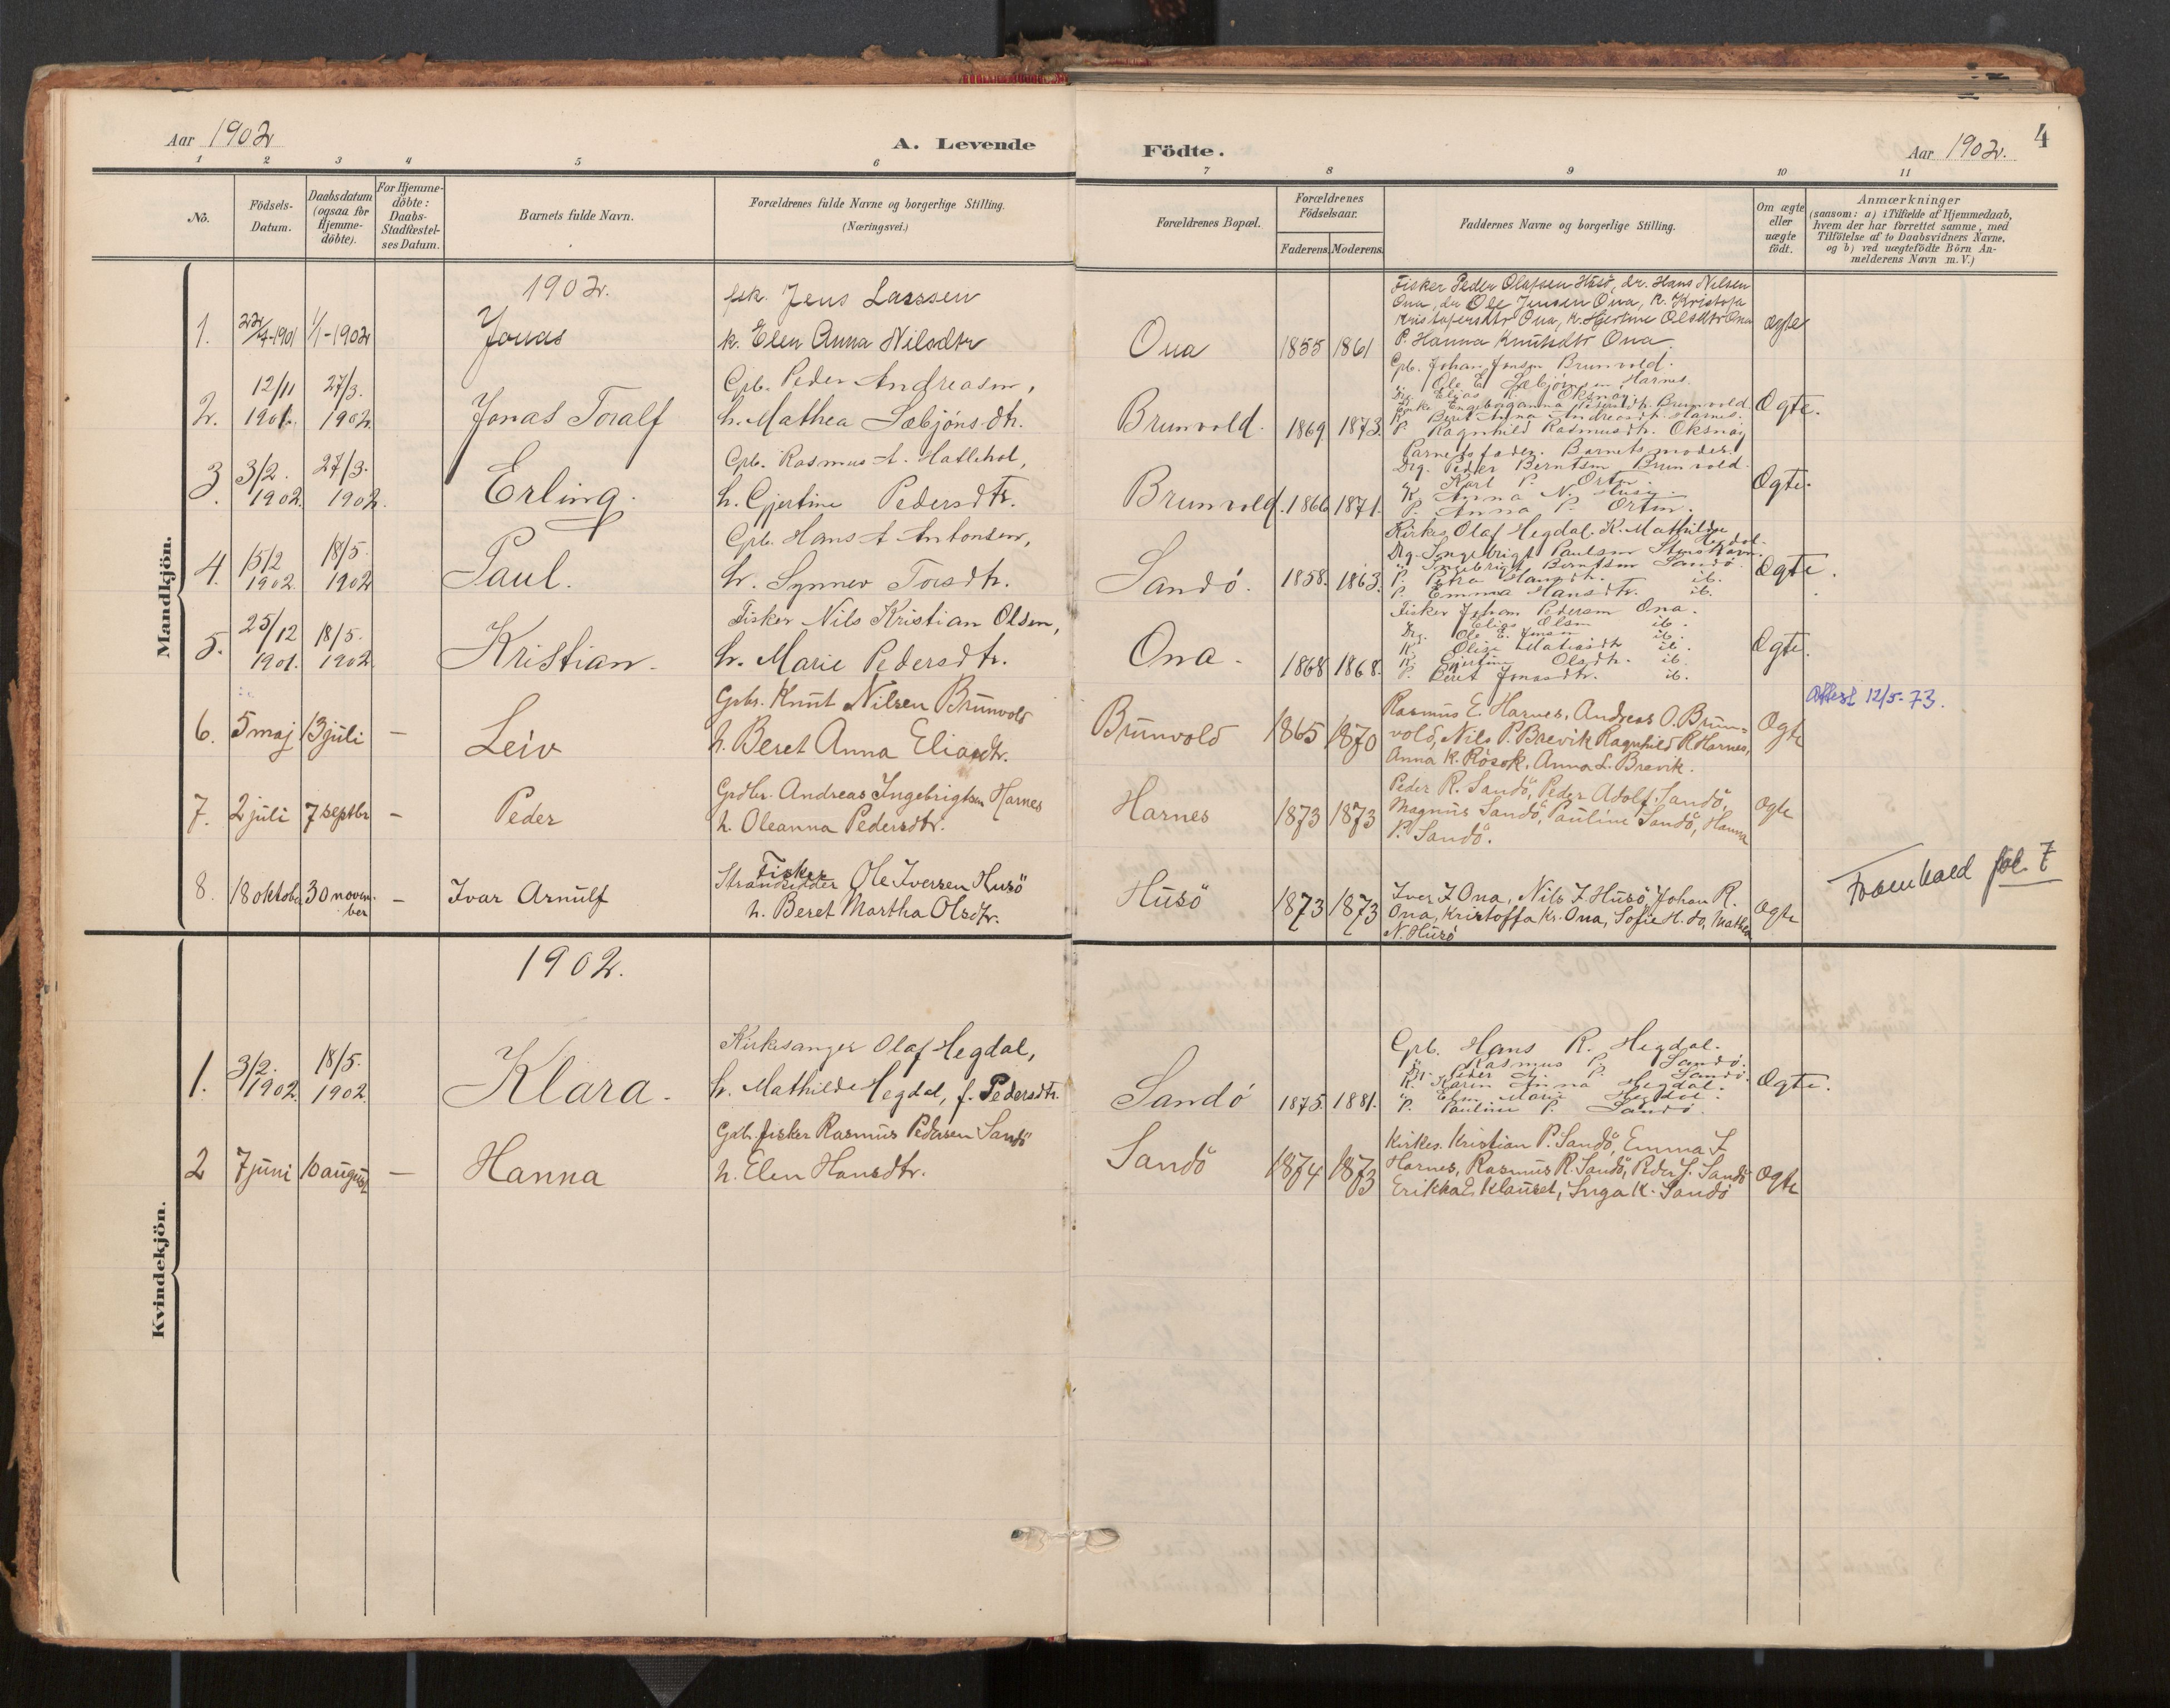 Aar 1902
A. Levende
Födte.
Aar 1902.
4
1 2 3 4 5 6 7 8 9 10 11
No.
Födsels-
Datum.
Daabsdatum
(ogsaa for
Hjemme-
döbte).
For Hjemme-
döbte:
Daabs-
Stadfæstel-
ses Datum.
Barnets fulde Navn.
Forældrenes fulde Navne og borgerlige Stilling.
(Næringsvei.)
Forældrenes Bopæl.
Forældrenes
Födselsaar.
Faderens. Moderens.
Faddernes Navne og borgerlige Stilling.
Om ægte
eller
uægte
födt.
Anmærkninger
(saasom: a) i Tilfælde af Hjemmedaab,
hvem der har forrettet samme, med
Tilföielse af to Daabsvidners Navne,
og b) ved uægtefödte Börn An-
melderens Navn m.V.)
Mandkjön.
1902.
1. 1/1-1902 Jonas
fisk. Jens Larssen
k. Elen Anna Nilsdtr
Ona 1855 1861
Fisker Peder Olafsen Husö, dr. Hans Nilsen
Ona, dr Ole Jensen Ona, K. Kristofa
Kristofersdtr Ona, K. Gjertine Olsdtr Ona
P. Hanna Knutsdtr Ona.
ægte
2. 12/11 1901. 27/3. 1902. Jonas Toralf
Gpb. Peder Andreasen,
h. Mathea Sæbjóns.dtr.
Brunvold. 1869 1873.
Gpb. Johan Jonsen Brunvold.
" Ole E. Sæbjörnsen Harnes.
Dr. Elias K. Oksnöy.
Enke Engeborganna Pedersdtr. Brunvold.
K. Beret Anna Andreasdtr. Harnes.
P. Ragnhild Rasmusdtr. Oksnöy
Ogte.
3. 3/2. 1902. 27/3. 1902. Erling.
Gpb. Rasmus A. Hatlehol,
h. Gjertine Pedersdtr.
Brunvold. 1866 1871.
Barnets fader. Barnets moder.
Drg. Peder Berntsen Brunvold.
" Karl P. Orten.
K. Anna N. Husö.
P. Anna P. Orten.
Ogte.
4. 15/2 1902. 18/5. 1902 Paul.
Gpb. Hans A Antonsen,
h. Synnev Torsdtr.
Sandó. 1858. 1863.
Kirkes. Olaf Hegdal. K. Mathilde
Hegdal.
Drg. Ingebrigt Paulsen Stenshavn.
" Ingebrigt Berntsen Sandö.
P. Petra Hansdtr. ib.
P. Emma Hansdtr. ib.
Ogte.
5. 25/12 1901. 18/5. 1902 Kristian.
Fisker Nils Kristian Olsen,
h. Marie Pedersdtr.
Ona. 1868 1868.
Fisker Johan Pedersen Ona.
" Elias Olsen ib.
Drg. Ole E. Jensen ib.
K. Olise Matiasdtr ib.
K. Gjertine Olsdtr. ib.
P. Beret Jonasdtr. ib.
Ogte.
6. 5 maj 13 juli — Leiv
Gpbr. Knut Nilsen Brunvold
h. Beret Anna Eliasdtr.
Brunvold 1865 1870
Rasmus E. Harnes, Andreas O. Brun-
vold, Nils P. Brevik Ragnhild R Harnes,
Anna K. Rösok, Anna L. Brevik.
Ogte
Attest 12/5-73.
7. 2 juli 7 septbr — Peder
Grdbr. Andreas Ingebrigtsen Harnes
h. Oleanna Pedersdtr.
Harnes 1873 1873
Peder R. Sandö, Peder Adolf Sandö,
Magnus Sandö, Pauline Sandö, Hanna
P. Sandö.
Ogte
8. 18 oktober 30 novem-
ber — Ivar Arnulf
Fisker
Strandsidder Ole Iversen Husö
h. Beret Martha Olsdtr.
Husö 1873 1873
Iver I Ona, Nils I Husö, Johan R.
Ona, Kristoffa Kr. Ona, Sofie H. do, Mathea
N. Husö
Ogte
Framhald fol. 7
Kvindekjön.
1902.
1. 3/2. 1902. 18/5. 1902. Klara.
Kirkesanger Olaf Hegdal,
h. Mathilde Hegdal, f. Pedersdtr.
Sandó 1875. 1881.
Gpb. Hans R. Hegdal.
" Rasmus P. Sandö.
Dr. Peter A. P. Sandö.
K. Karen Anna Hegdal.
" Elen Marie Hegdal.
P. Pauline P. Sandö.
Ogte.
2 7 juni 10 august — Hanna
Gpb. fisker Rasmus Pedersen Sandö
h. Elen Hansdtr.
Sandö 1874 1873
Kirkes. Kristian P. Sandö, Emma I.
Harnes, Rasmus R. Sandö, Peder J. Sandö
Erikka E Klauset, Inga K. Sandö
Ogte